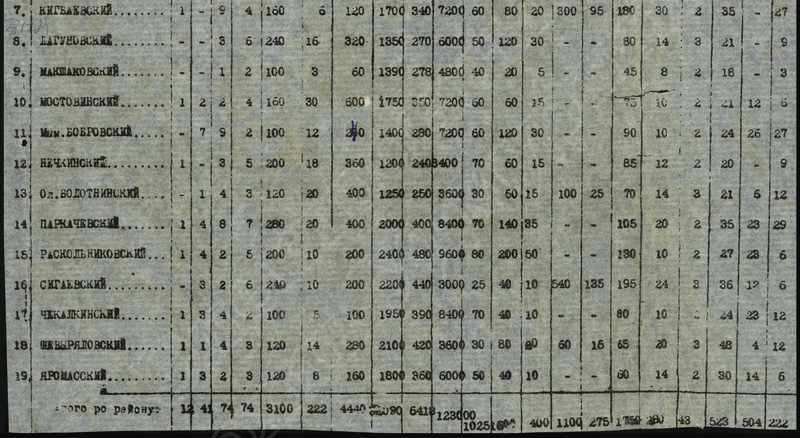 7. КИГБАЕВСКИЙ........ 1 - 9 4 160 6 120 1700 340 7200 60 80 20 300 95 180 30 2 35 - 27
8. ЛАГУНОВСКИЙ........ - - 3 6 240 16 320 1350 270 6000 50 120 30 - - 80 14 3 21 - 9
9. МАКШАКОВСКИЙ....... - - 1 2 100 3 60 1390 278 4800 40 20 5 - - 45 8 2 18 - 3
10. МОСТОВИНСКИЙ....... 1 2 2 4 160 30 600 1750 350 7200 60 60 15 - - 75 10 2 21 12 6
11. Мим. БОБРОВСКИЙ..... - 7 9 2 100 12 240 1400 280 7200 60 120 30 - - 90 10 2 24 26 27
12. НЕЧКИНСКИЙ......... 1 - 3 5 200 18 360 1200 240 8400 70 60 15 - - 85 12 2 20 - 9
13. Ол. БОЛОТНИНСКИЙ.... - 1 4 3 120 20 400 1250 250 3600 30 60 15 100 25 70 14 3 21 5 12
14. ПАРКАЧЕВСКИЙ....... 1 4 8 7 280 20 400 2000 400 8400 70 140 35 - - 105 20 2 35 23 29
15. РАСКОЛЬНИКОВСКИЙ... 1 4 2 5 200 10 200 2400 480 9600 80 200 50 - - 130 10 2 27 23 6
16. СИГАЕВСКИЙ......... - 3 2 6 240 10 200 2200 440 3000 25 40 10 540 135 195 24 3 36 12 6
17. ЧЕКАЛКИНСКИЙ....... 1 3 4 2 100 5 100 1950 390 8400 70 40 10 - - 80 10 24 23 12
18. ШЕВЫРЯЛОВСКИЙ...... 1 1 4 3 120 14 280 2100 420 3600 30 80 20 60 15 65 20 3 48 4 12
19. ЯРОМАССКИЙ......... 1 3 2 3 120 8 160 1800 360 6000 50 40 10 - - 60 14 2 30 14 6
Итого по району: 12 41 74 74 3100 222 4440 6418 123000 1025 400 1100 275 1750 280 43 523 504 222